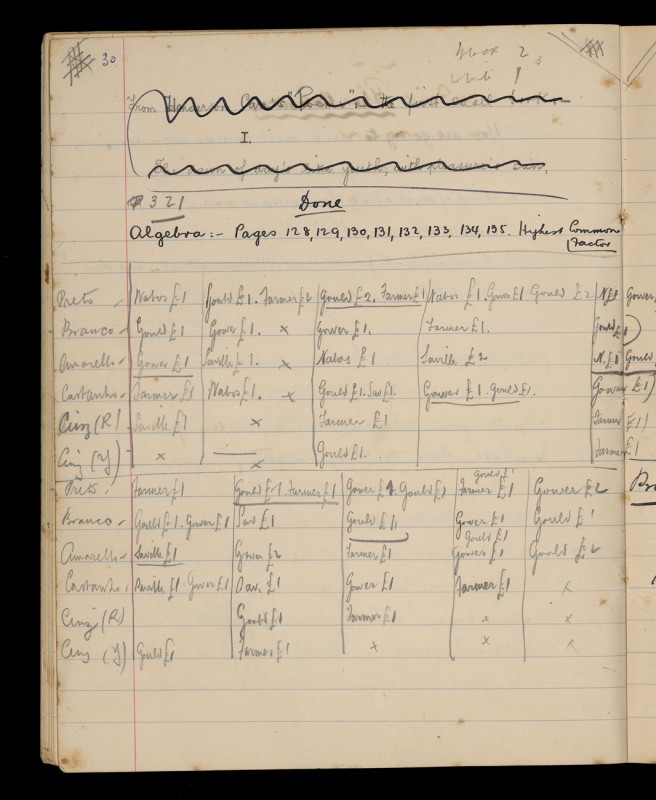 30
From Henderson
I.
321 Done
Algebra:- Pages 128, 129, 130, 131, 132, 133, 134, 135. Highest Common
Factor
Preto Nabos £1 Gould £1. Farmer £2 Gould £2. Farmer £1 Nabos £1. Gower £1 Gould £2 N.£1 Gower,
Branco Gould £1 Gower £1. x Gower £1. Farmer £1. Gould £1)
Amarello Gower £1 Saville £1. x Nabos £1 Saville £2 N.£1 Gould
Castanho Farmer £1 Nabos £1. x Gould £1. Sav £1. Gower £1. Gould £1. Gower £1)
Cinz (R) Saville £1 x Farmer £1 Farmer £1)
Cinz (Y) x x Gould £1. Farmer £1
Preto. Farmer £1 Gould £1 Farmer £1 Gower £1. Gould £1 Gould £1 Farmer £1 Gower £2
Branco Gould £1. Gower £1 Sav £1 Gould £1 Gower £1 Gould £1
Amarello Saville £1 Gower £2 Farmer £1 Gould £1 Gower £1 Gould £2
Castanho Saville £1. Gower £1 Sav. £1 Gower £1 Farmer £1 x
Cinz (R) Gould £1 Farmer £1 x x
Cinz (Y) Gould £1 Farmer £1 x x x